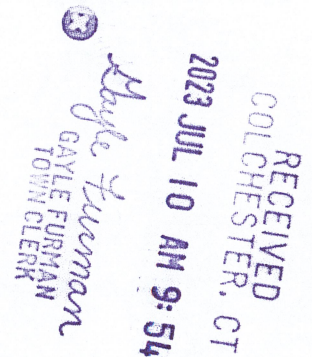 RECEIVED
COLCHESTER, CT
2023 JUL 10 AM 9:54
Gayle Furman
GAYLE FURMAN
TOWN CLERK